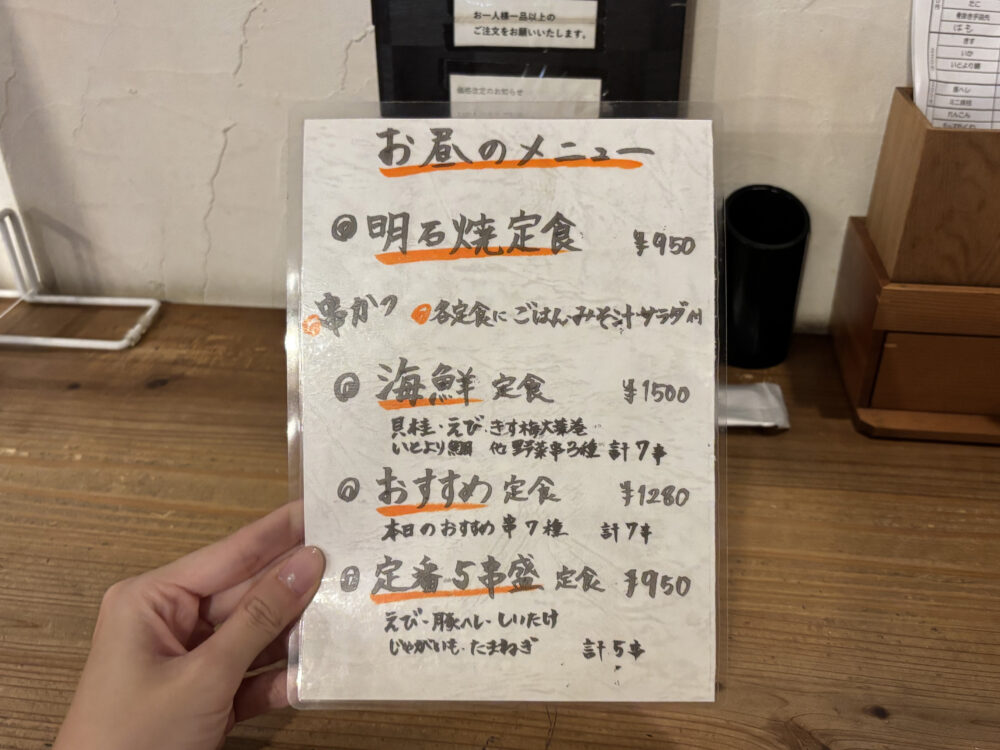 お一人様一品以上の
ご注文をお願いいたします。
価格改定のお知らせ
お昼のメニュー
明石焼定食 ¥950
串かつ 各定食に ごはん・みそ汁・サラダ付
海鮮 定食 ¥1500
貝柱・えび・きす梅大葉巻
いとより鯛 他 野菜串3種 計7串
おすすめ 定食 ¥1280
本日のおすすめ 串7種 計7串
定番5串盛 定食 ¥950
えび・豚ヘレ・しいたけ
じゃがいも・たまねぎ 計5串
たこ
はも
きす
いか
いとより鯛
豚ヘレ
れんこん